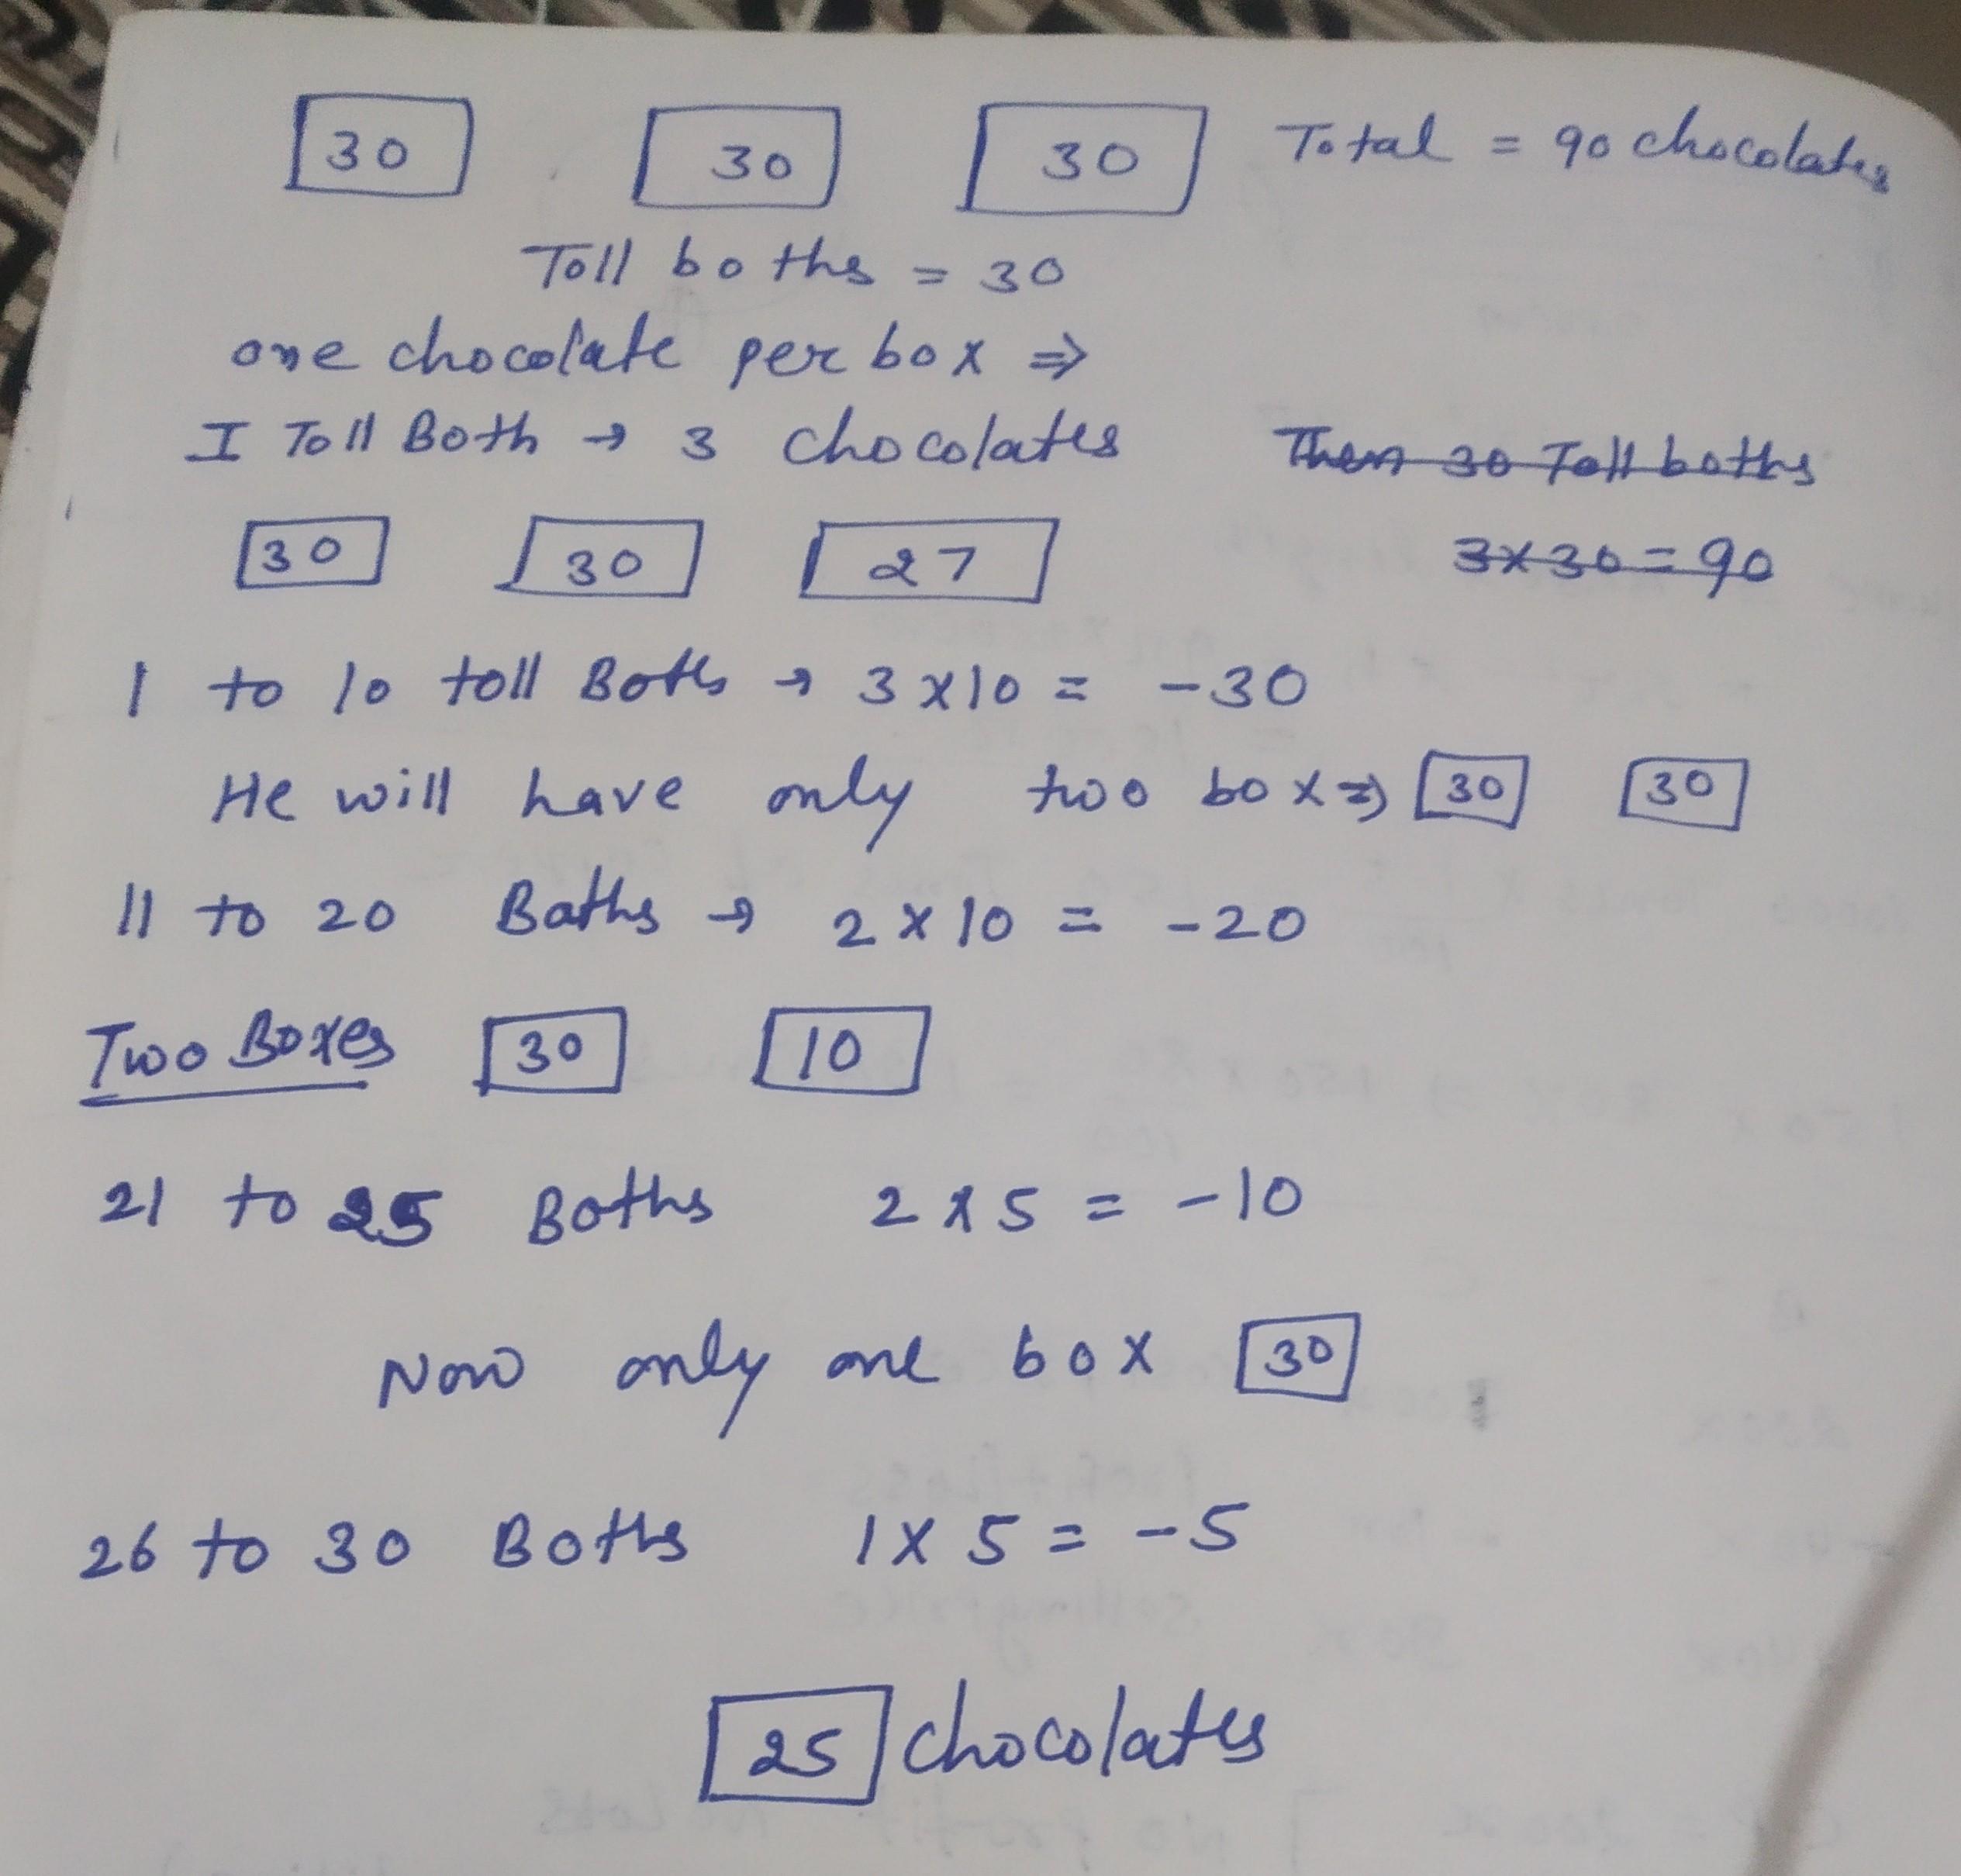 30 30 30 Total = 90 chocolates
Toll boths = 30
one chocolate per box ⇒
I Toll Both → 3 chocolates Then 30 Toll boths
30 30 27 3x30=90
1 to 10 toll Boths → 3 x10 = -30
He will have only two box ⇒ 30 30
11 to 20 Boths → 2 x 10 = -20
Two Boxes 30 10
21 to 25 Boths 2 x 5 = -10
Now only one box 30
26 to 30 Boths 1 x 5 = -5
25 chocolates